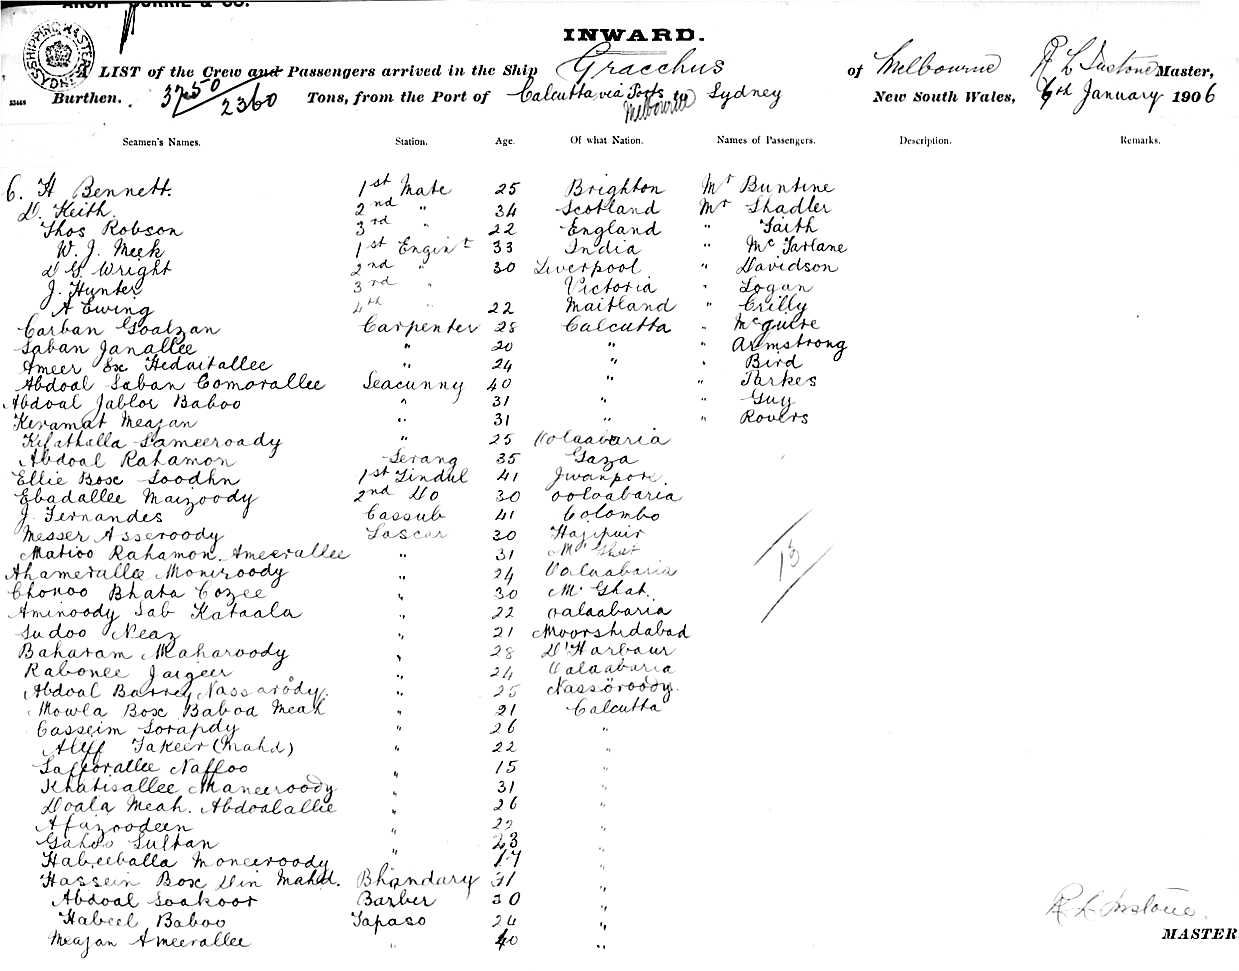 ARCH CURRIE & CO.
SHIPPING MASTER SYDNEY
INWARD.
A LIST of the Crew and Passengers arrived in the Ship Gracchus of Melbourne R L Instone Master,
Burthen. 3750 / 2360 Tons, from the Port of Calcutta via Ports & Melbourne to Sydney New South Wales, 6th January 1906
Seamen's Names. Station. Age. Of what Nation. Names of Passengers. Description. Remarks.
6. H Bennett. 1st Mate 25 Brighton Mr Buntine
D. Keith. 2nd " 34 Scotland Mr Shadler
Thos Robson 3rd " 22 England " Faith
W. J. Meek 1st Engint 33 India " McFarlane
D G Wright 2nd " 30 Liverpool " Davidson
J. Hunter 3rd " Victoria " Logan
A Ewing 4th " 22 Maitland " Crilly
Carban Goalzan Carpenter 28 Calcutta " McGuire
Saban Janallee " 20 " " Armstrong
Ameer Ex Hedaitallee " 24 " " Bird
Abdoal Saban Comorallee Seacunny 40 " " Parkes
Abdoal Jablor Baboo " 31 " " Guy
Keramat Meajan " 31 " " Rovers
Kifathalla Sameeroady " 25 Oolaabaria
Abdoal Rahamon Serang 35 Gaza
Ellie Box Soodhn 1st Tindul 41 Jwanpore.
Ebadallee Maizoody 2nd Do 30 oolaabaria
J. Fernandes Cassub 41 Colombo
Messer Asseroody Lascar 30 Hajipuir
Matioo Rahamon. Ameerallee " 31 M' Ghat
Ahamerallee Moniroody " 24 Oolaabaria
Chonoo Bhata Cozee " 30 M' Ghat.
Aminoody Sab Kataala " 22 oalaabaria
Sudoo Neaz " 21 Moorshidabad
Baharam Maharoody " 28 D'Harbour
Rabonee Jaigeer " 24 Oalaabaria
Abdoal Barrey Nassarody. " 25 Nassoroody.
Mowla Box Baboa Meah " 21 Calcutta
Casseim Sorapdy " 26 "
Aleff Fakeer (Mahd) " 22 "
Safforallee Naffoo " 15 "
Khatisallee Maneeroody " 31 "
Doala Meah. Abdoalallie " 26 "
Afazoodeen " 22 "
Gahoo Sultan " 23 "
Habeeballa Monceroody " 17 "
Hassein Box Din Mahd. Bhandary 31 "
Abdoal Soakoor Barber 30 "
Habeel Baboo Topaso 24 "
Meajan Ameerallee " 40 "
13
R L Instone.
MASTER